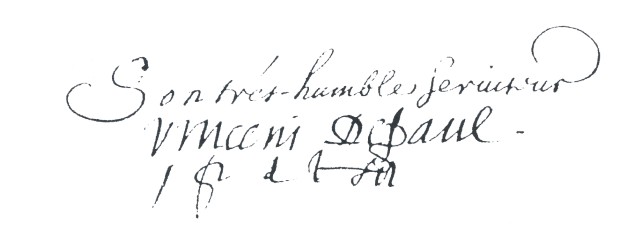 Son trés-humble seruiteur
Vincent Depaul